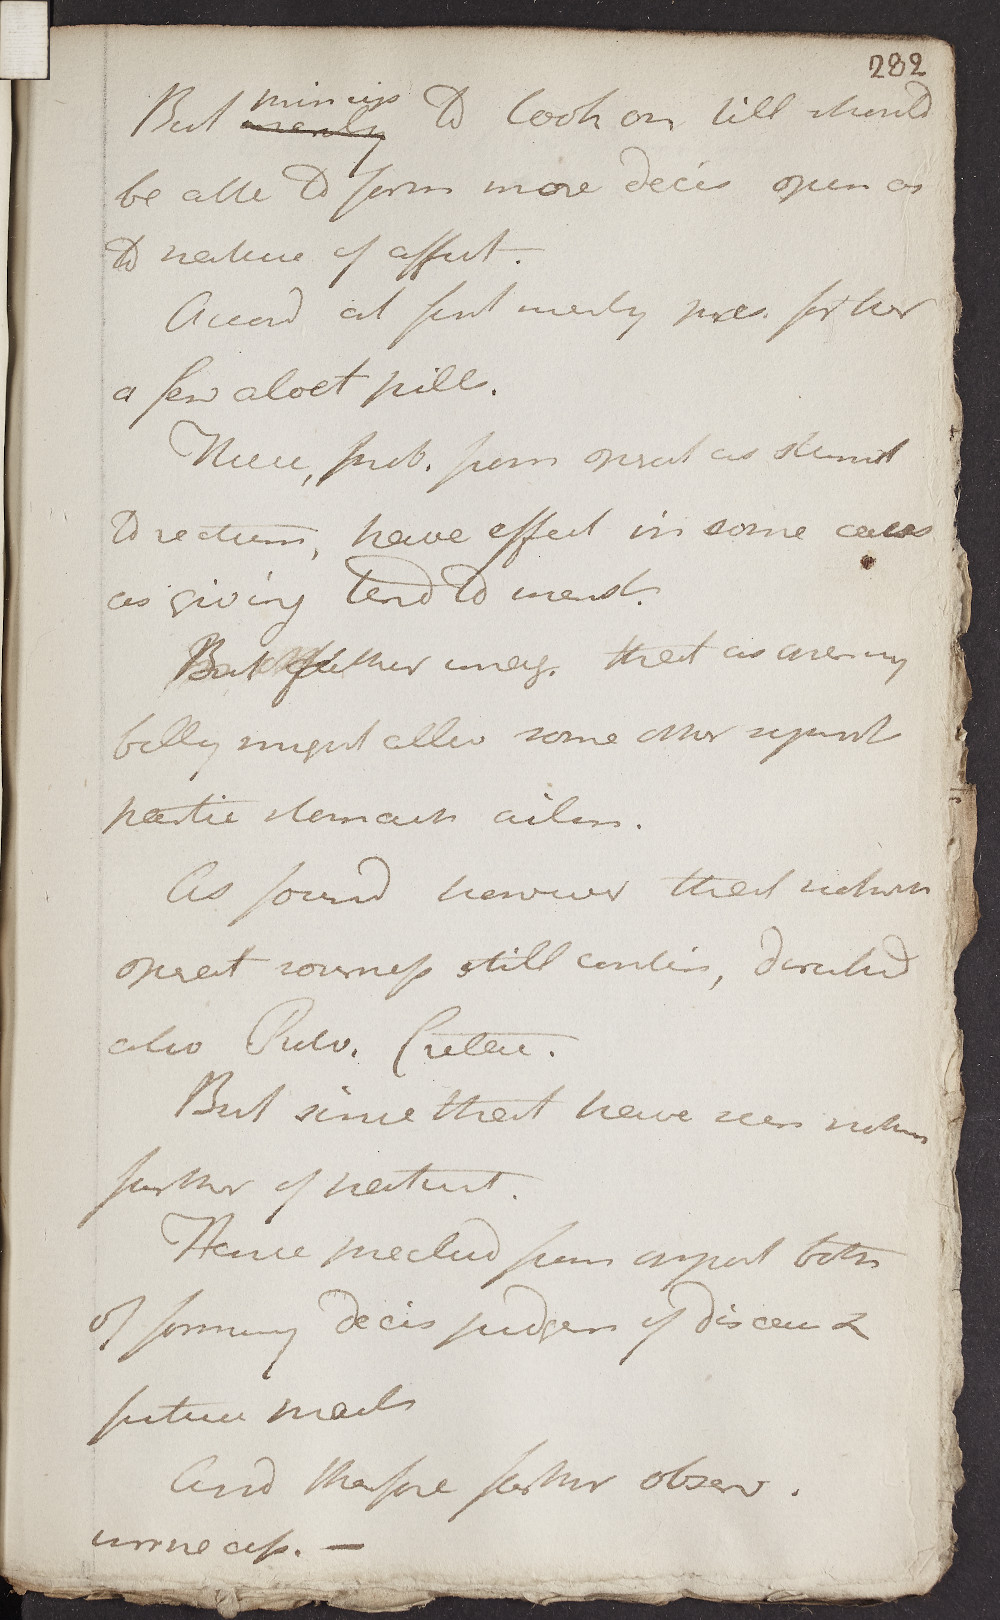 282
But mincip to look on till should
be able to form more decis opin as
to nature of affect.
Accord at first merely pres. for her
a few aloet pill.
These, prob. from operat as stimul
to rectum, have effect in some cases
as giving tend to menst.
But further imag. that as opening
belly might allev some other sympt
partic stomach ailm.
As found however that notwith
operat sourness still contin, directed
also Pulv. Cretae.
But since that have seen nothin
further of patient.
Hence preclud from opport both
of forming decis judgem of disease &
future mark
And therefore further observ.
unnecess. —